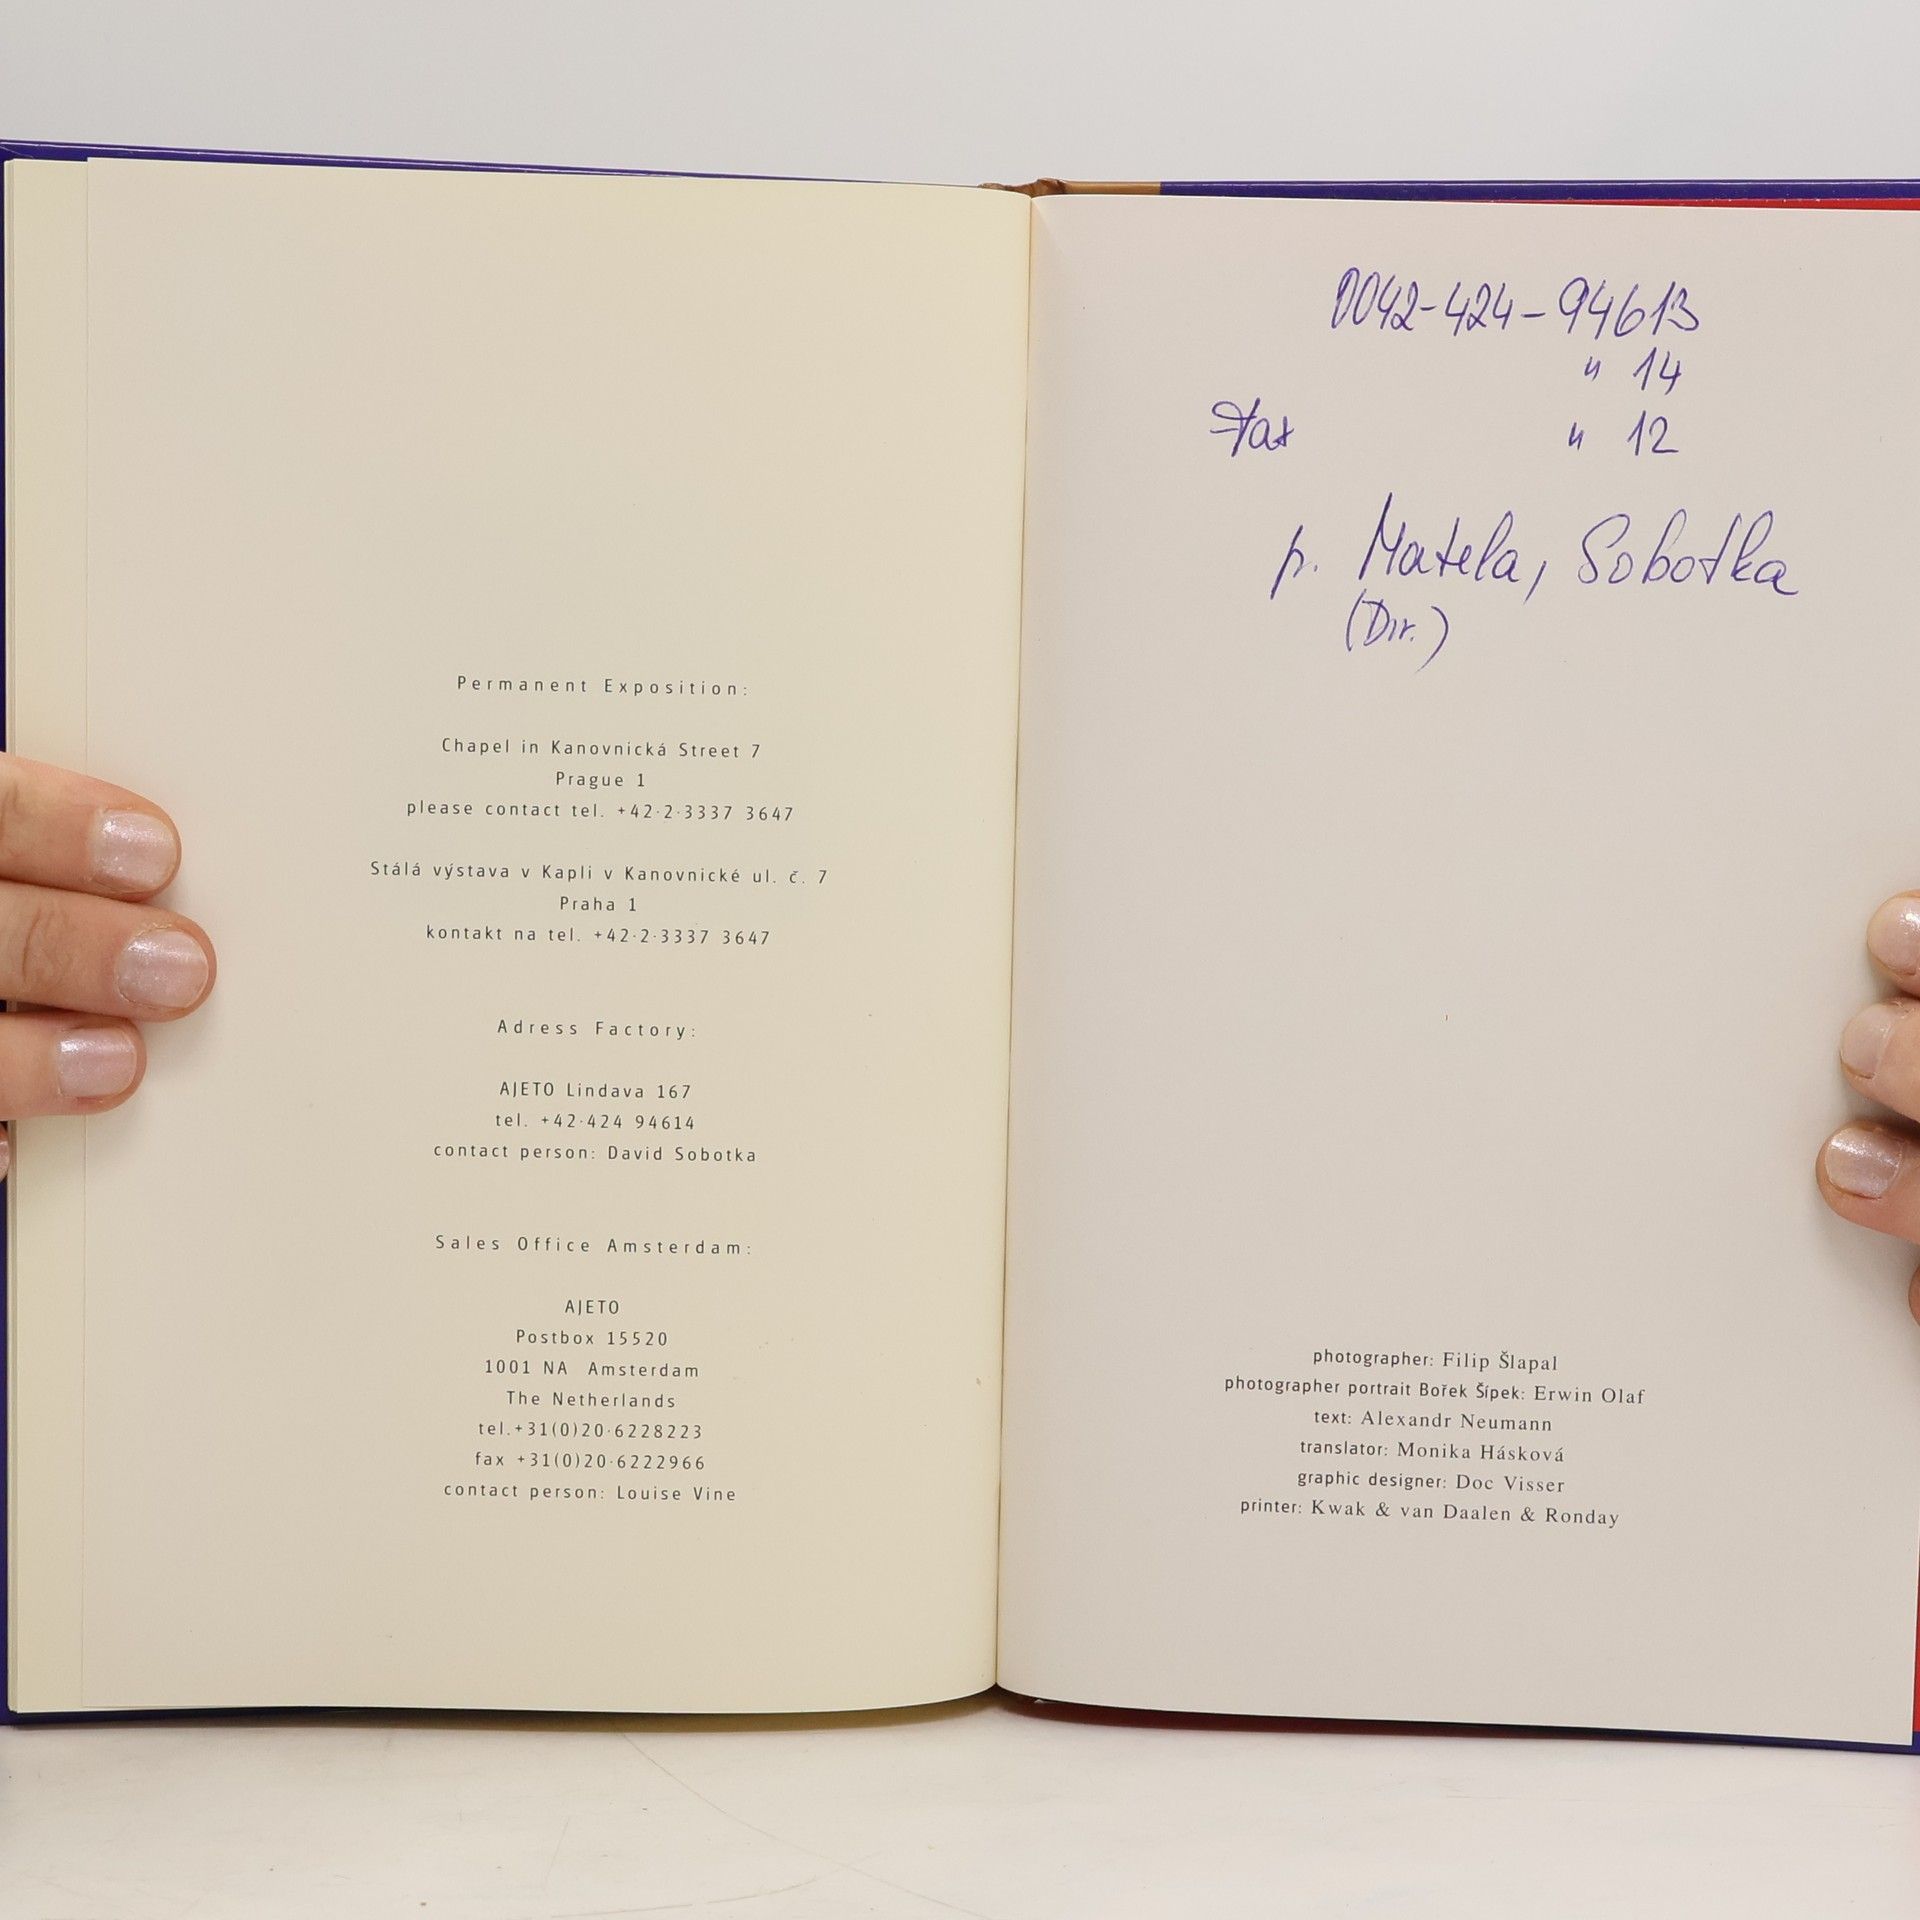 Permanent Exposition:
Chapel in Kanovnická Street 7
Prague 1
please contact tel. +42·2·3337 3647
Stálá výstava v Kapli v Kanovnické ul. č. 7
Praha 1
kontakt na tel. +42·2·3337 3647
Adress Factory:
AJETO Lindava 167
tel. +42·424 94614
contact person: David Sobotka
Sales Office Amsterdam:
AJETO
Postbox 15520
1001 NA Amsterdam
The Netherlands
tel.+31(0)20·6228223
fax +31(0)20·6222966
contact person: Louise Vine
0042-424-94613
" 14
Fax " 12
p. Matela, Sobotka
(Dir.)
photographer: Filip Šlapal
photographer portrait Bořek Šípek: Erwin Olaf
text: Alexandr Neumann
translator: Monika Hásková
graphic designer: Doc Visser
printer: Kwak & van Daalen & Ronday